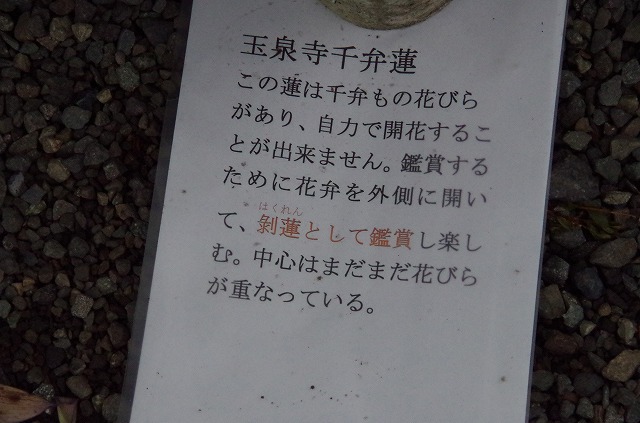 玉泉寺千弁蓮
この蓮は千弁もの花びら
があり、自力で開花するこ
とが出来ません。鑑賞する
ために花弁を外側に開い
はくれん
て、剥蓮として鑑賞し楽し
む。中心はまだまだ花びら
が重なっている。